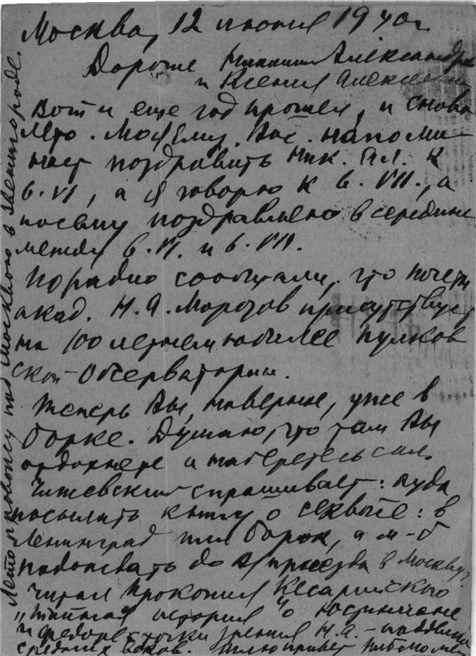 Москва, 12 июня 1940 г.
Дорогие Николай Александрович
и Ксения Алексеевна
Вот и еще год прошел, и снова
лето. напоми
нает поздравить Ник. Ал. к
6.VI, а я говорю к 6.VII, а
посему поздравляю в середине
между 6.VI. и 6.VII.
По радио сообщали, что почетн
акад. Н.А. Морозов присутствует
на 100 летнем юбилее Пулков
ской Обсерватории.
Теперь Вы, наверное, уже в
Борке. Думаю, что там Вы
отдохнете и наберетесь сил.
Чижевский спрашивает: куда
посылать книгу о : в
Ленинград или Борок, а м-б
подождать до приезда в Москву.
Читал Прокопия Кесарийского
"Тайная история" о Юстиниане
и Феодоре с точки зрения Н.А. -
средних веков. Шлю привет
Лето провожу под Москвою в Звенигороде.